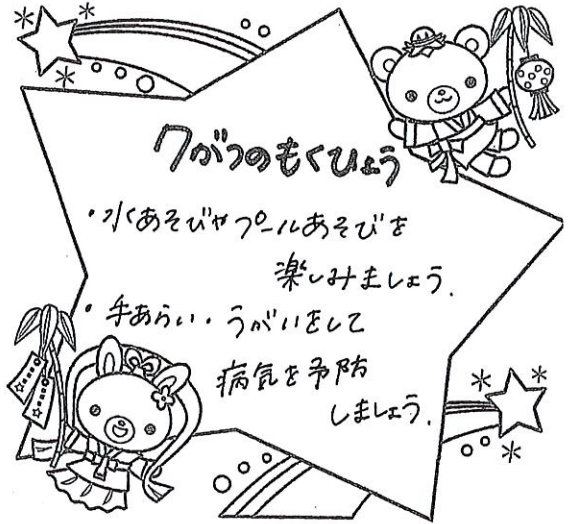 7がつのもくひょう
・水あそびやプールあそびを
楽しみましょう.
・手あらい・うがいをして
病気を予防
しましょう.